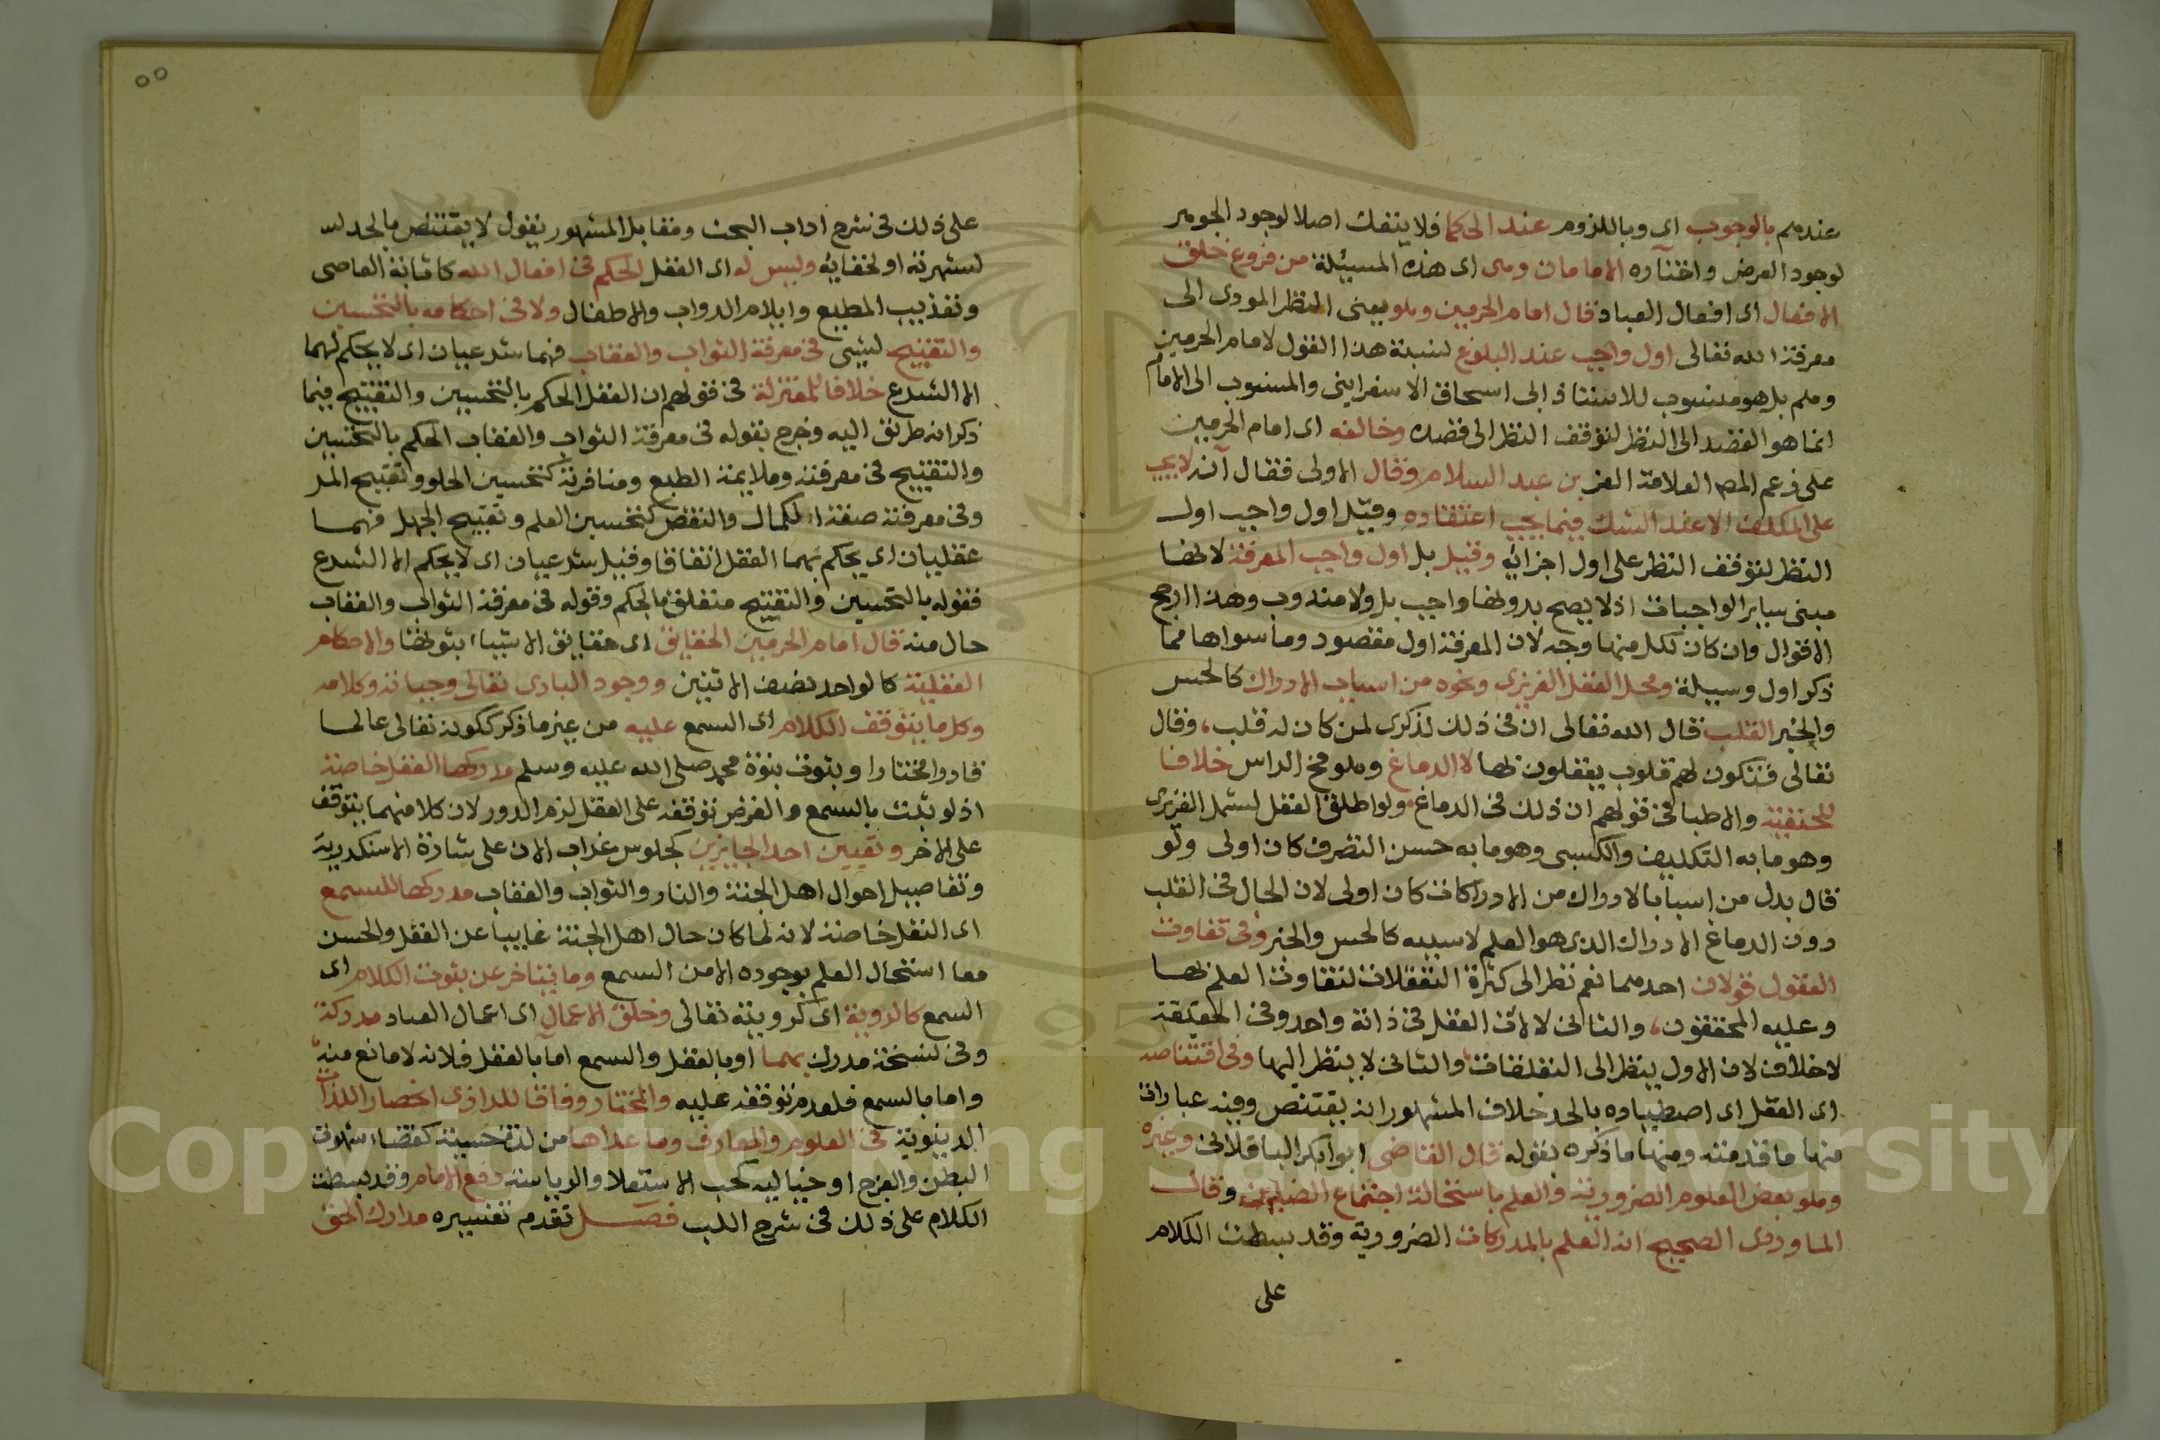 عندهم بالوجوب اى وباللزوم عند الحكما فلا ينفك اصلا لوجود الجوهر
لوجود العرض واختاره الامامان وهى اى هذه المسيئلة من فروع خلق
الافعال اى افعال العباد قال امام الحرمين وهو يعنى النظر المودى الى
معرفة الله تعالى اول واجب عند البلوغ لنسبة هذا القول لامام الحرمين
وهم بل هو منسوب للاستاذ ابى اسحاق الاسفراينى والمنسوب الى الامام
انما هو القصد الى النظر لتوقف النظر الى قصده وخالفه اى امام الحرمين
على زعم المص العلامة العز بن عبد السلام وقال الاولى فقال انه لا يجب
على المكلف الا عند الشك فيما يجب اعتقاده وقيل اول واجب اول
النظر لتوقف النظر على اول اجزائه وقيل بل اول واجب المعرفة لانها
مبنى سائر الواجبات اذ لا يصح بدونها واجب بل ولا مندوب وهذا ارجح
الاقوال وان كان لكل منها وجه لان المعرفة اول مقصود وما سواها مما
ذكر اول وسيلة ومحل العقل الغريزى ونحوه من اسباب الادراك كالحس
والخبر القلب قال الله تعالى ان فى ذلك لذكرى لمن كان له قلب، وقال
تعالى فتكون لهم قلوب يعقلون بها لا الدماغ وهو مخ الراس خلافا
للحنفية والاطبا فى قولهم ان ذلك فى الدماغ ولو اطلق العقل لشمل الغريزى
وهو ما به التكليف والكسبى وهو ما به حسن التصرف كان اولى ولو
قال بدل من اسباب الادراك من الادراكات كان اولى لان الحال فى القلب
دون الدماغ الادراك الذى هو العلم لا سببه كالحس والخبر وفى تفاوت
العقول قولان احدهما نعم نظرا الى كثرة التعقلات لتفاوت العلم بها
وعليه المحققون، والثانى لا لان العقل فى ذاته واحد وفى الحقيقة
لا خلاف لان الاول ينظر الى التعلقات والثانى لا ينظر اليها وفى اقتناصه
اى العقل اى اصطياده بالحد خلاف المشهور انه يقتنص وفيه عبارات
منها ما قدمته ومنها ما ذكره بقوله قال القاضى ابو بكر الباقلانى وغيره
وهو بعض العلوم الضرورية والعلم باستحالة اجتماع الضدين وقال
الماوردى الصحيح انه العلم بالمدركات الضرورية وقد بسطت الكلام
على
٥٥
على ذلك فى شرح اداب البحث ومقابل المشهور يقول لا يقتنص بالحد لس
لشهرته او لخفايه وليس له اى العقل الحكم فى افعال الله كاثابة العاصى
وتعذيب المطيع وايلام الدواب والاطفال ولا فى احكامه بالتحسين
والتقبيح لشيى فى معرفة الثواب والعقاب فهما شرعيان اى لا يحكم لهما
الا الشرع خلافا للمعتزلة فى قولهم ان العقل الحكم بالتحسين والتقبيح فيما
ذكر انه طريق اليه وخرج بقوله فى معرفة الثواب والعقاب الحكم بالتحسين
والتقبيح فى معرفته وملايمة الطبع ومنافرته كتحسين الحلو وتقبيح المر
وفى معرفته صفة الكمال والنقص كتحسين العلم وتقبيح الجهل فهما
عقليان اى يحكم بهما العقل اتفاقا وقيل شرعيان اى لا يحكم الا الشرع
فقوله بالتحسين والتقبيح متعلق بالحكم وقوله فى معرفة الثواب والعقاب
حال منه قال امام الحرمين الحقايق اى حقايق الاشياء بثوتها والاحكام
العقلية كالواحد نصف الاثنين ووجود البارى تعالى وحياته وكلامه
وكل ما يتوقف الكلام اى السمع عليه من غير ما ذكر ككونه تعالى عالما
قادرا مختارا وبثوت بنوة محمد صلى الله عليه وسلم مدركها العقل خاصة
اذ لو ثبت بالسمع والفرض توقفه على العقل لزم الدور لان كلا منهما يتوقف
على الاخر وتعيين احد الجايزين كجلوس غراب الان على منارة الاسكندرية
وتفاصيل احوال اهل الجنة والنار والثواب والعقاب مدركها للسمع
اى النقل خاصة لانه لما كان حال اهل الجنة غايبا عن العقل والحس
معا استحال العلم بوجوده الا من السمع وما يتاخر عن بثوت الكلام اى
السمع كالروية اى كرويته تعالى وخلق الاعمال اى اعمال العباد مدركة
وفى نسخة مدرك بهما او بالعقل والسمع اما بالعقل فلانه لا مانع منه
واما بالسمع فلعدم توقفه عليه والمختار وفاقا للرازى انحصار اللذات
الدينوية فى العلوم والمعارف وما عداها من لذة حسية كقضاء شهوتى
البطن والفرج او خيالية كحب الاستعلا والرياسة دفع الامام وقد بسطت
الكلام على ذلك فى شرح اللب فصل تقدم تفسيره مدارك الحق
Copy Right © King Saud University
1957